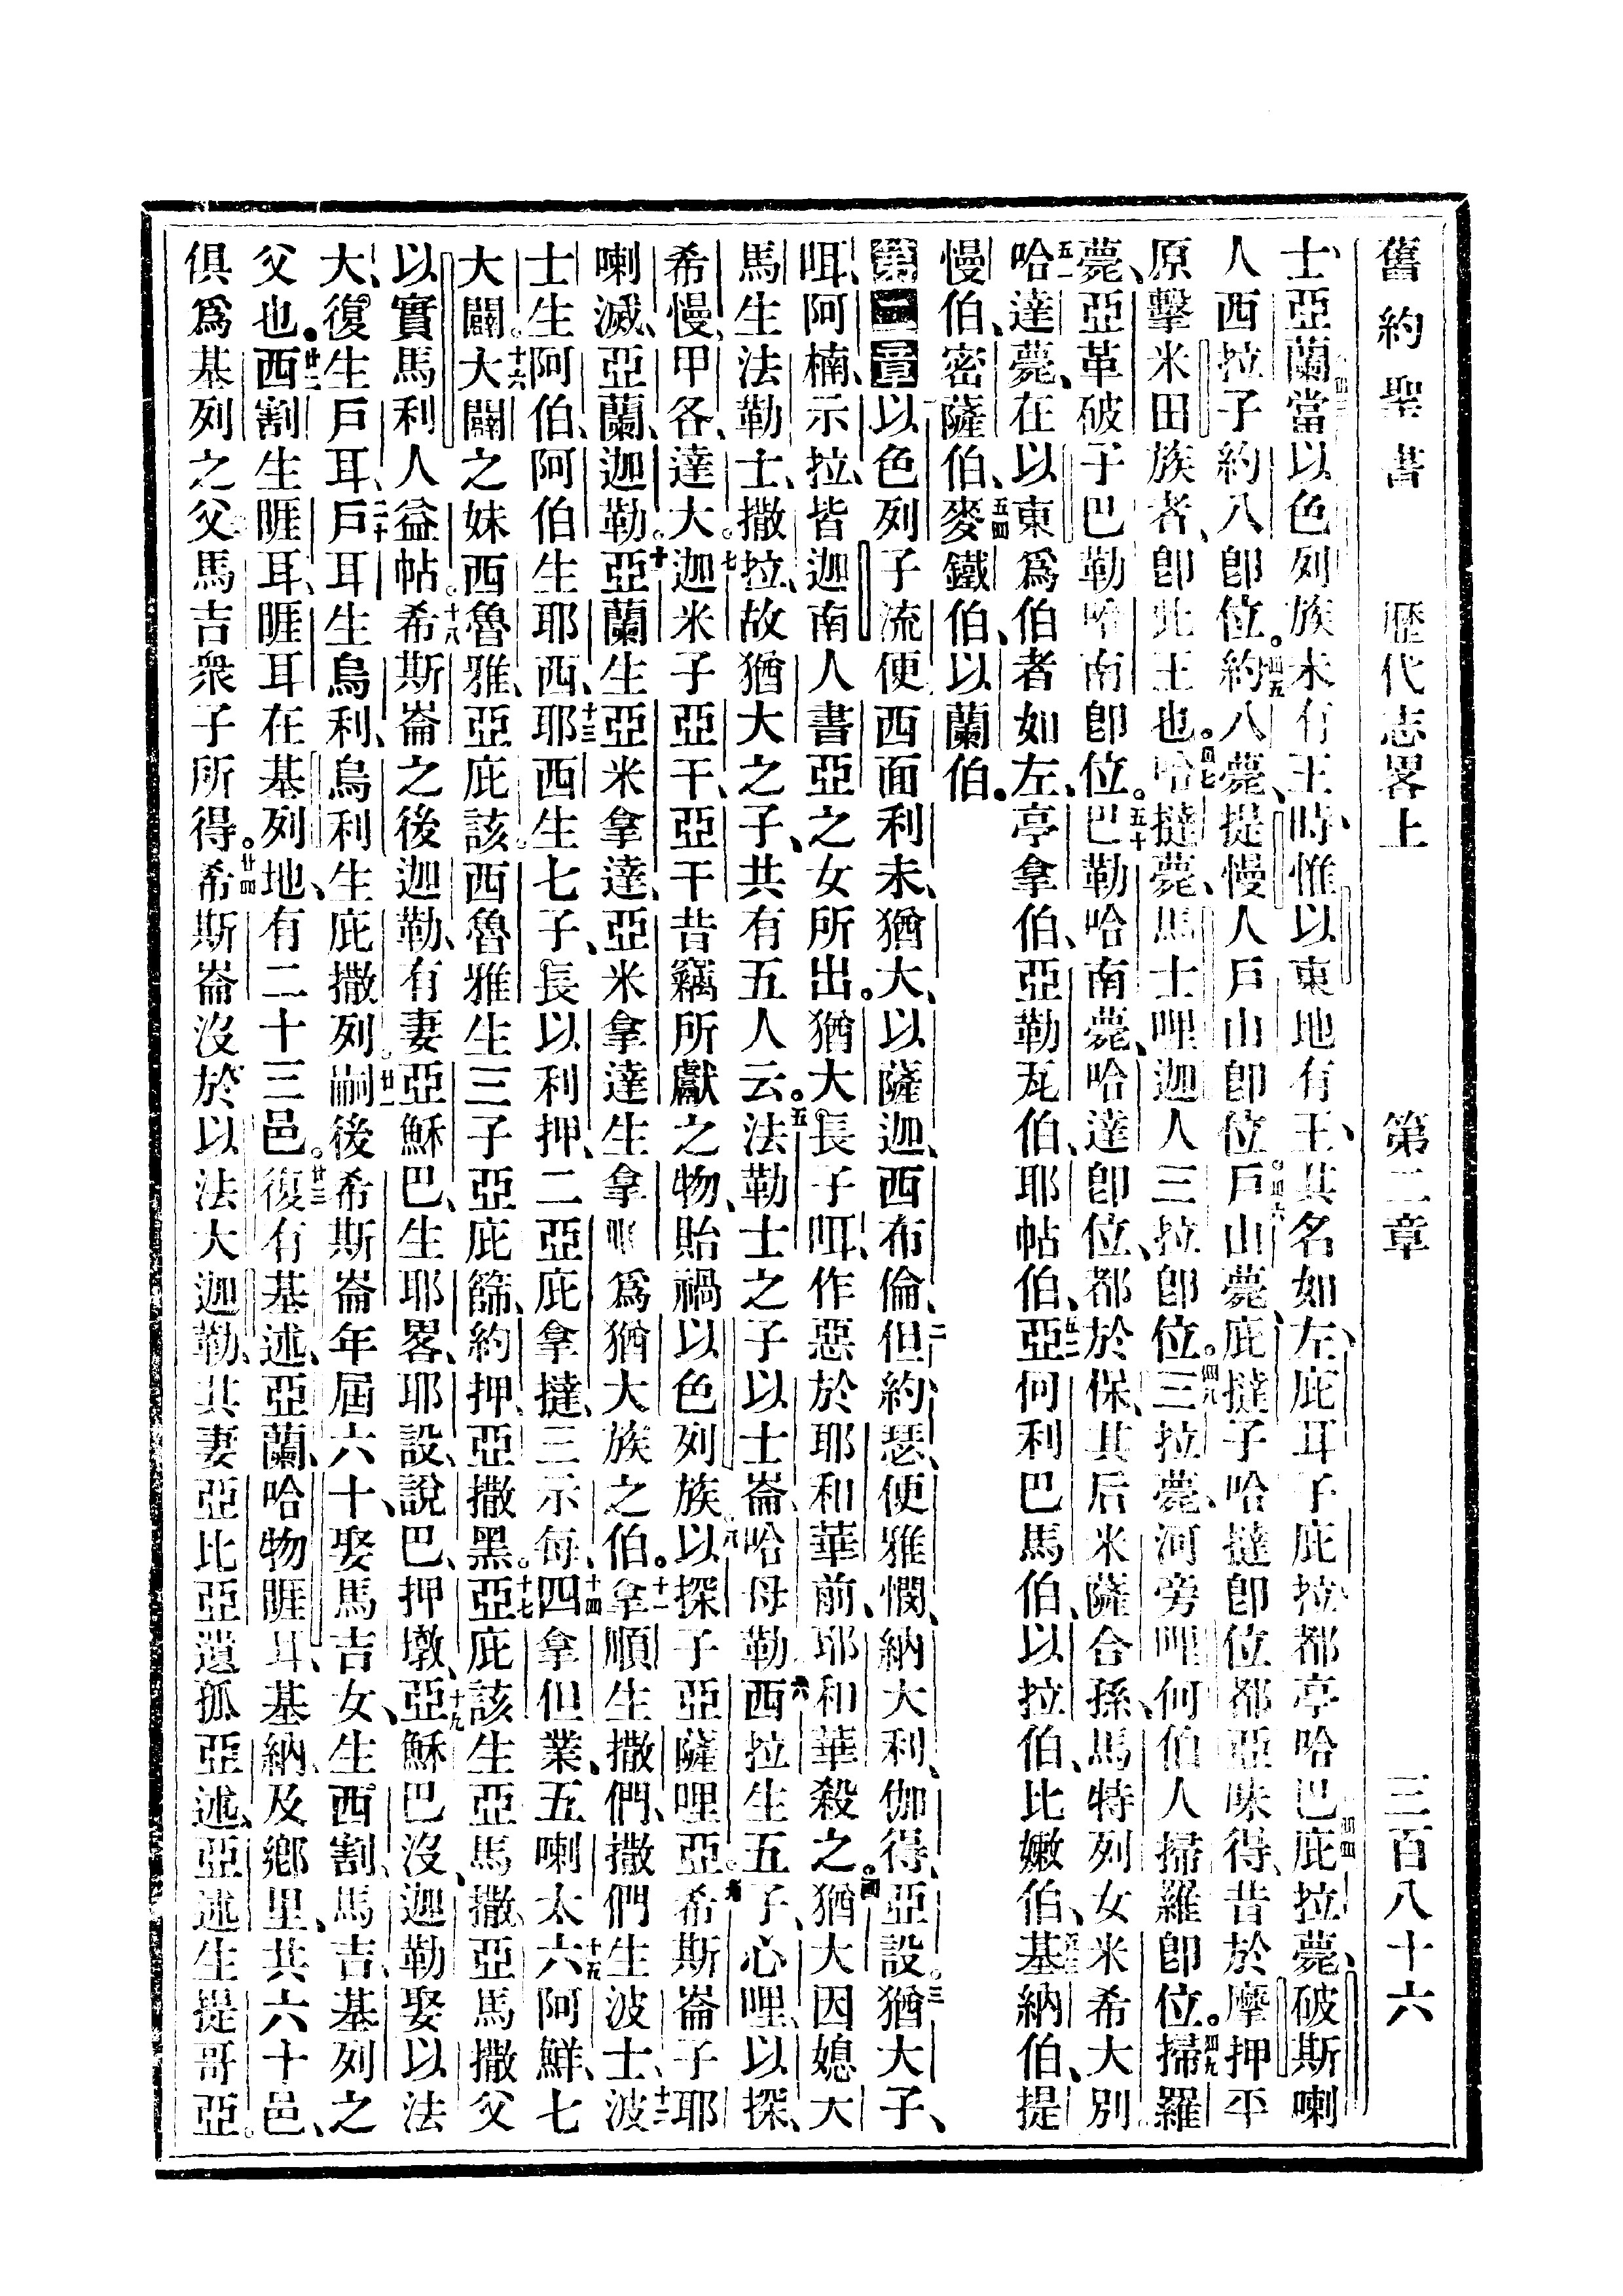 舊約聖書 歷代志畧上 第二章 三百八十六
士、亞蘭當以色列族未有王時、惟以東地有王、其名如左、庇耳子庇拉都亭哈巴庇拉薨、破斯喇
人西拉子約八卽位。約八薨、提慢人戶山卽位。戶山薨、庇撻子哈撻卽位都亞味得、昔於摩押平
原擊米田族者、卽此王也。哈撻薨、馬士哩迦人三拉卽位。三拉薨、河旁哩何伯人掃羅卽位。掃羅
薨、亞革破子巴勒哈南卽位。巴勒哈南薨、哈達卽位、都於保、其后米薩合孫、馬特列女米希大別
哈達薨、在以東爲伯者如左、亭拿伯、亞勒瓦伯、耶帖伯、亞何利巴馬伯、以拉伯、比嫩伯、基納伯、提
慢伯、密薩伯、麥鐵伯、以蘭伯。
第二章以色列子流便西面利未、猶大、以薩迦、西布倫、但約瑟、便雅憫、納大利、伽得、亞設。猶大子、
咡、阿楠、示拉、皆迦南人書亞之女所出。猶大長子咡、作惡於耶和華前、耶和華殺之。猶大因媳大
馬生法勒士、撒拉、故猶大之子、共有五人云。法勒士之子以士崙、哈母勒西拉生五子、心哩、以探、
希慢、甲各、達大。迦米子亞干、亞干昔竊所獻之物、貽禍以色列族。以探子亞薩哩亞。希斯崙子耶
喇滅、亞蘭、迦勒。亞蘭生亞米拿達、亞米拿達生拿順爲猶大族之伯。拿順生撒們、撒們生波士、波
士生阿伯、阿伯生耶西、耶西生七子、長以利押、二亞庇拿撻、三示每、四拿但業、五喇太六阿鮮、七
大闢。大闢之妹西魯雅、亞庇該。西魯雅生三子亞庇篩、約押、亞撒黑。亞庇該生亞馬撒、亞馬撒父
以實馬利人益帖。希斯崙之後迦勒、有妻亞穌巴、生耶畧、耶設、說巴、押墩、亞穌巴沒、迦勒娶以法
大、復生戶耳、戶耳生烏利、烏利生庇撒列。嗣後希斯崙年屆六十、娶馬吉女、生西割、馬吉、基列之
父也。西割生睚耳、睚耳在基列地、有二十三邑。復有基述、亞蘭、哈物睚耳、基納、及鄉里、共六十邑、
俱爲基列之父馬吉衆子所得。希斯崙沒於以法大迦勒、其妻亞比亞遺孤亞述、亞述生提哥亞。